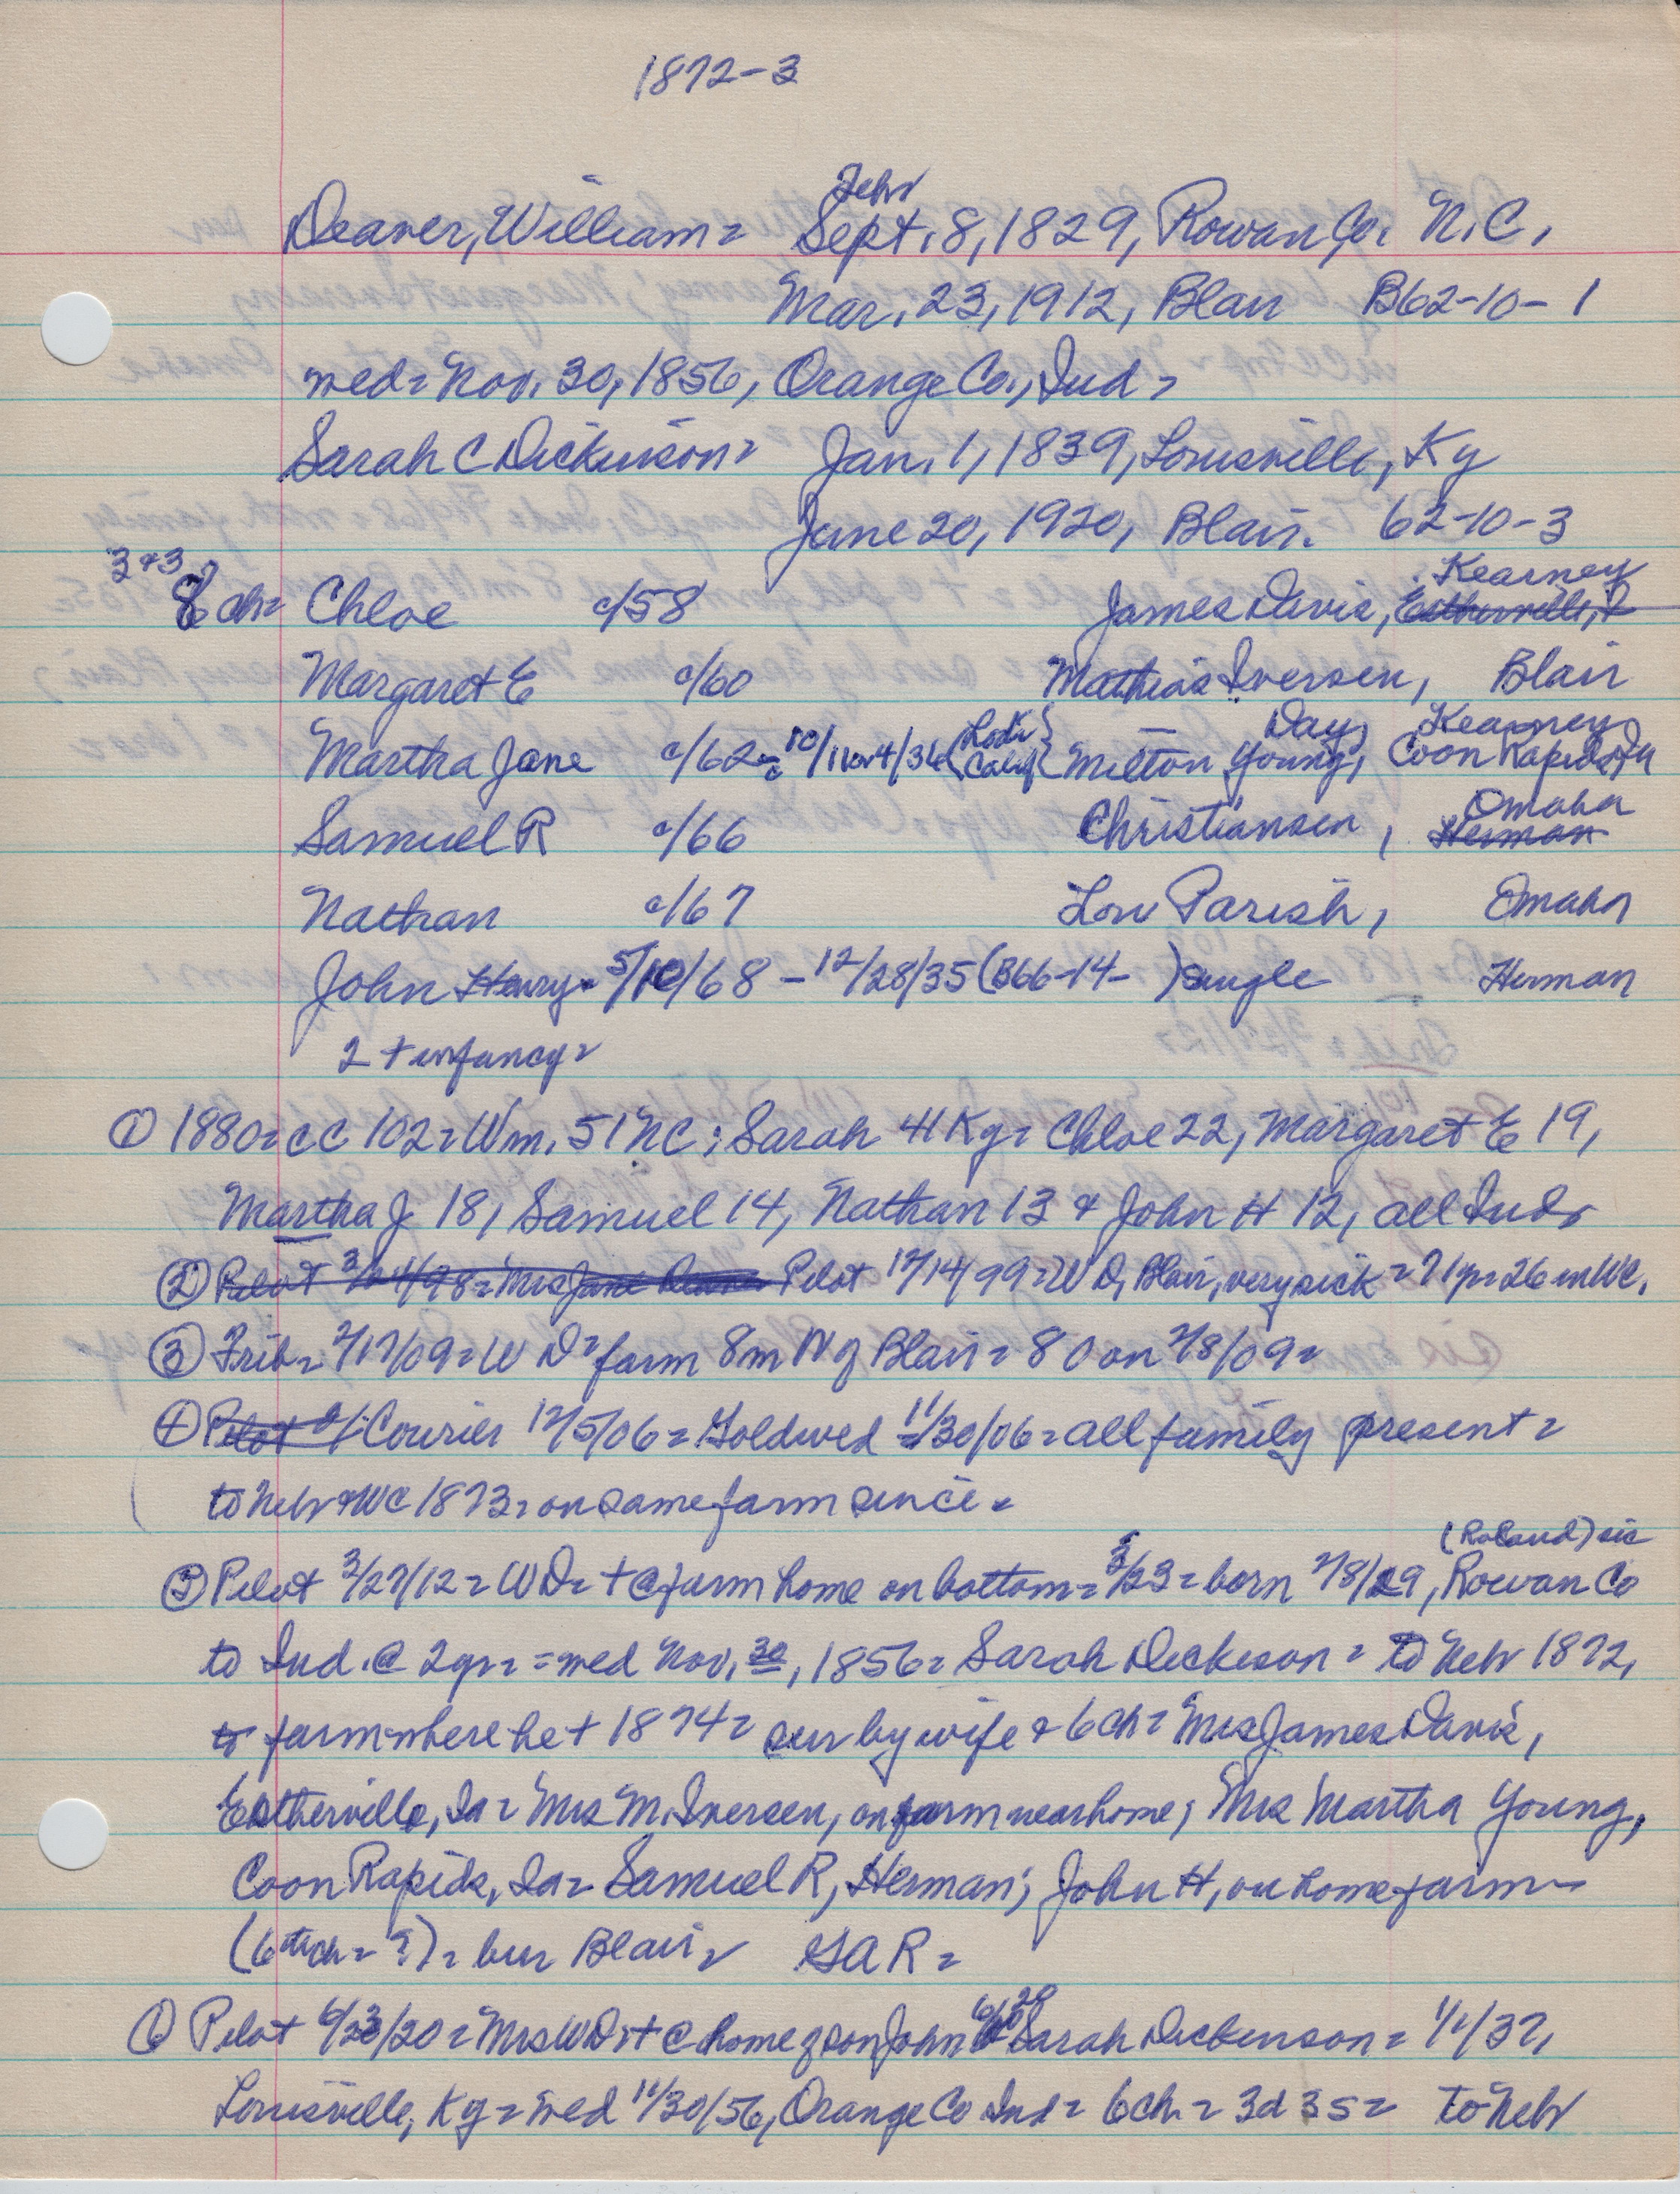 1872-3
Febr
Deaver, William = Sept. 8, 1829, Rowan Co. N.C.,
Mar. 23, 1912, Blair B62-10-1
med = Nov. 30, 1856, Orange Co., Ind =
Sarah C Dickinson = Jan. 1, 1839, Louisville, Ky
June 20, 1920, Blair. 62-10-3
3 & 3 Kearney
8 ch = Chloe c/58 James Davis, Estherville, I
Margaret E c/60 Mathias Iversen, Blair
Day, Kearney
Martha Jane c/62 - 10/1 or 4/36 (Lodi Calif) Milton Young, Coon Rapids, Ia
Omaha
Samuel R c/66 Christiansen, Herman
Nathan c/67 Lou Parish, Omaha
John Henry = 5/10/68 - 12/28/35 (B66-14- ) single Herman
2 + infancy =
① 1880 = CC 102 = Wm. 51 NC; Sarah 41 Ky = Chloe 22, Margaret E 19,
Martha J 18, Samuel 14, Nathan 13 & John H 12, all Ind.
② Pilot 3/24/98 = Mrs Jane Deaver Pilot 12/14/99 = W D, Blair, very sick = 71 yr = 26 in WC.
③ Trib = 2/17/09 = W D = farm 8 m N of Blair = 80 on 2/8/09 =
④ Pilot Courier 12/5/06 = Gold wed 11/30/06 = all family present =
to Nebr & WC 1873 = on same farm since =
(Roland) sic
⑤ Pilot 3/27/12 = W D = + @ farm home on bottom = 3/23 = born 2/8/29, Rowan Co
to Ind. @ 2 yr = = med Nov. 30, 1856 = Sarah Dickeson = to Nebr 1872,
to farm where he + 1874 = sur by wife & 6 ch = Mrs James Davis,
Estherville, Ia = Mrs M. Iversen, on farm near home; Mrs Martha Young,
Coon Rapids, Ia = Samuel R, Herman; John H, on home farm -
(6th ch = ?) = bur Blair = GAR =
6/20
⑥ Pilot 6/23/20 = Mrs W D = + @ home of son John Sarah Dickenson = 1/1/37,
Louisville, Ky = med 11/30/56, Orange Co Ind = 6 ch = 3 d 3 s = to Nebr